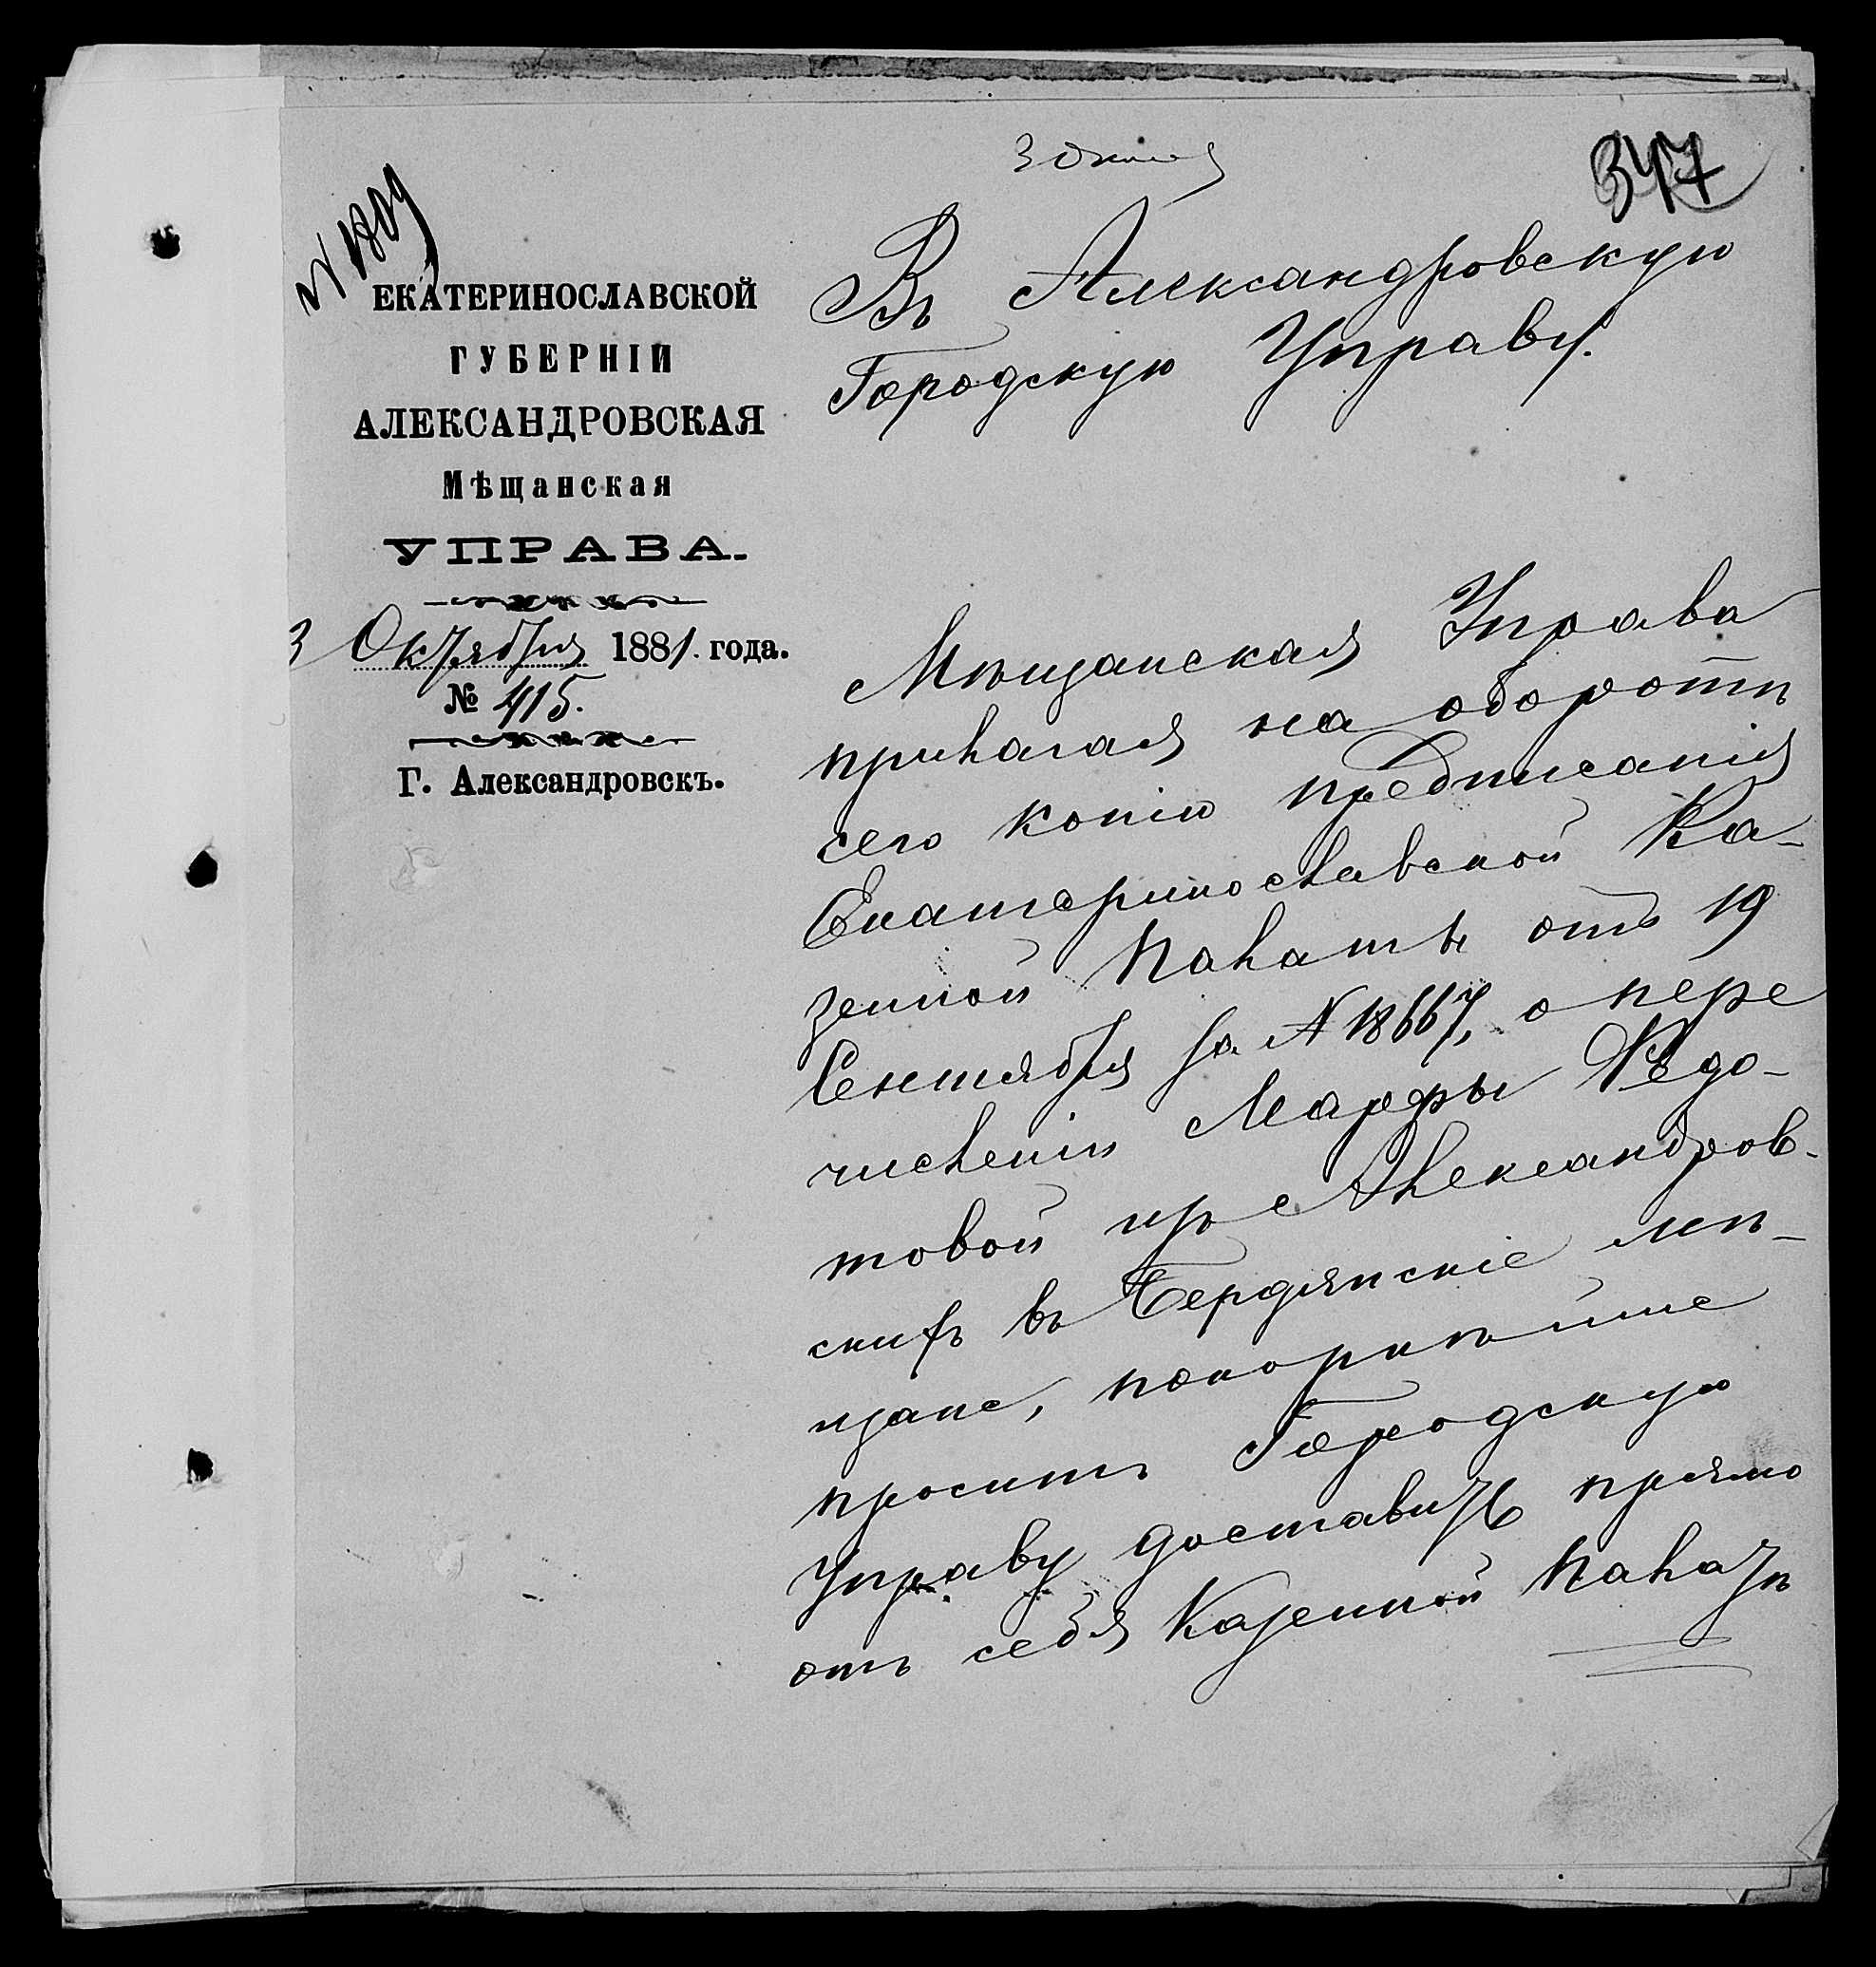 3 Окт
347
№ 1809
ЕКАТЕРИНОСЛАВСКОЙ
ГУБЕРНІИ
АЛЕКСАНДРОВСКАЯ
Мѣщанская
УПРАВА.
3 Октября 1881. года.
№ 415.
Г. Александровскъ.
Въ Александровскую
Городскую Управу.
Мѣщанская Управа
прилагая на оборотѣ
сего копію предписанія
Екатеринославской Ка-
зенной Палаты отъ 19
Сентября за № 18667, о пере
численіи Марфы Федо-
товой изъ Александров-
скихъ въ Бердянскіе мѣ-
щане, покорнѣйше
проситъ Городскую
Управу доставить прямо
отъ себя Казенной Палатѣ